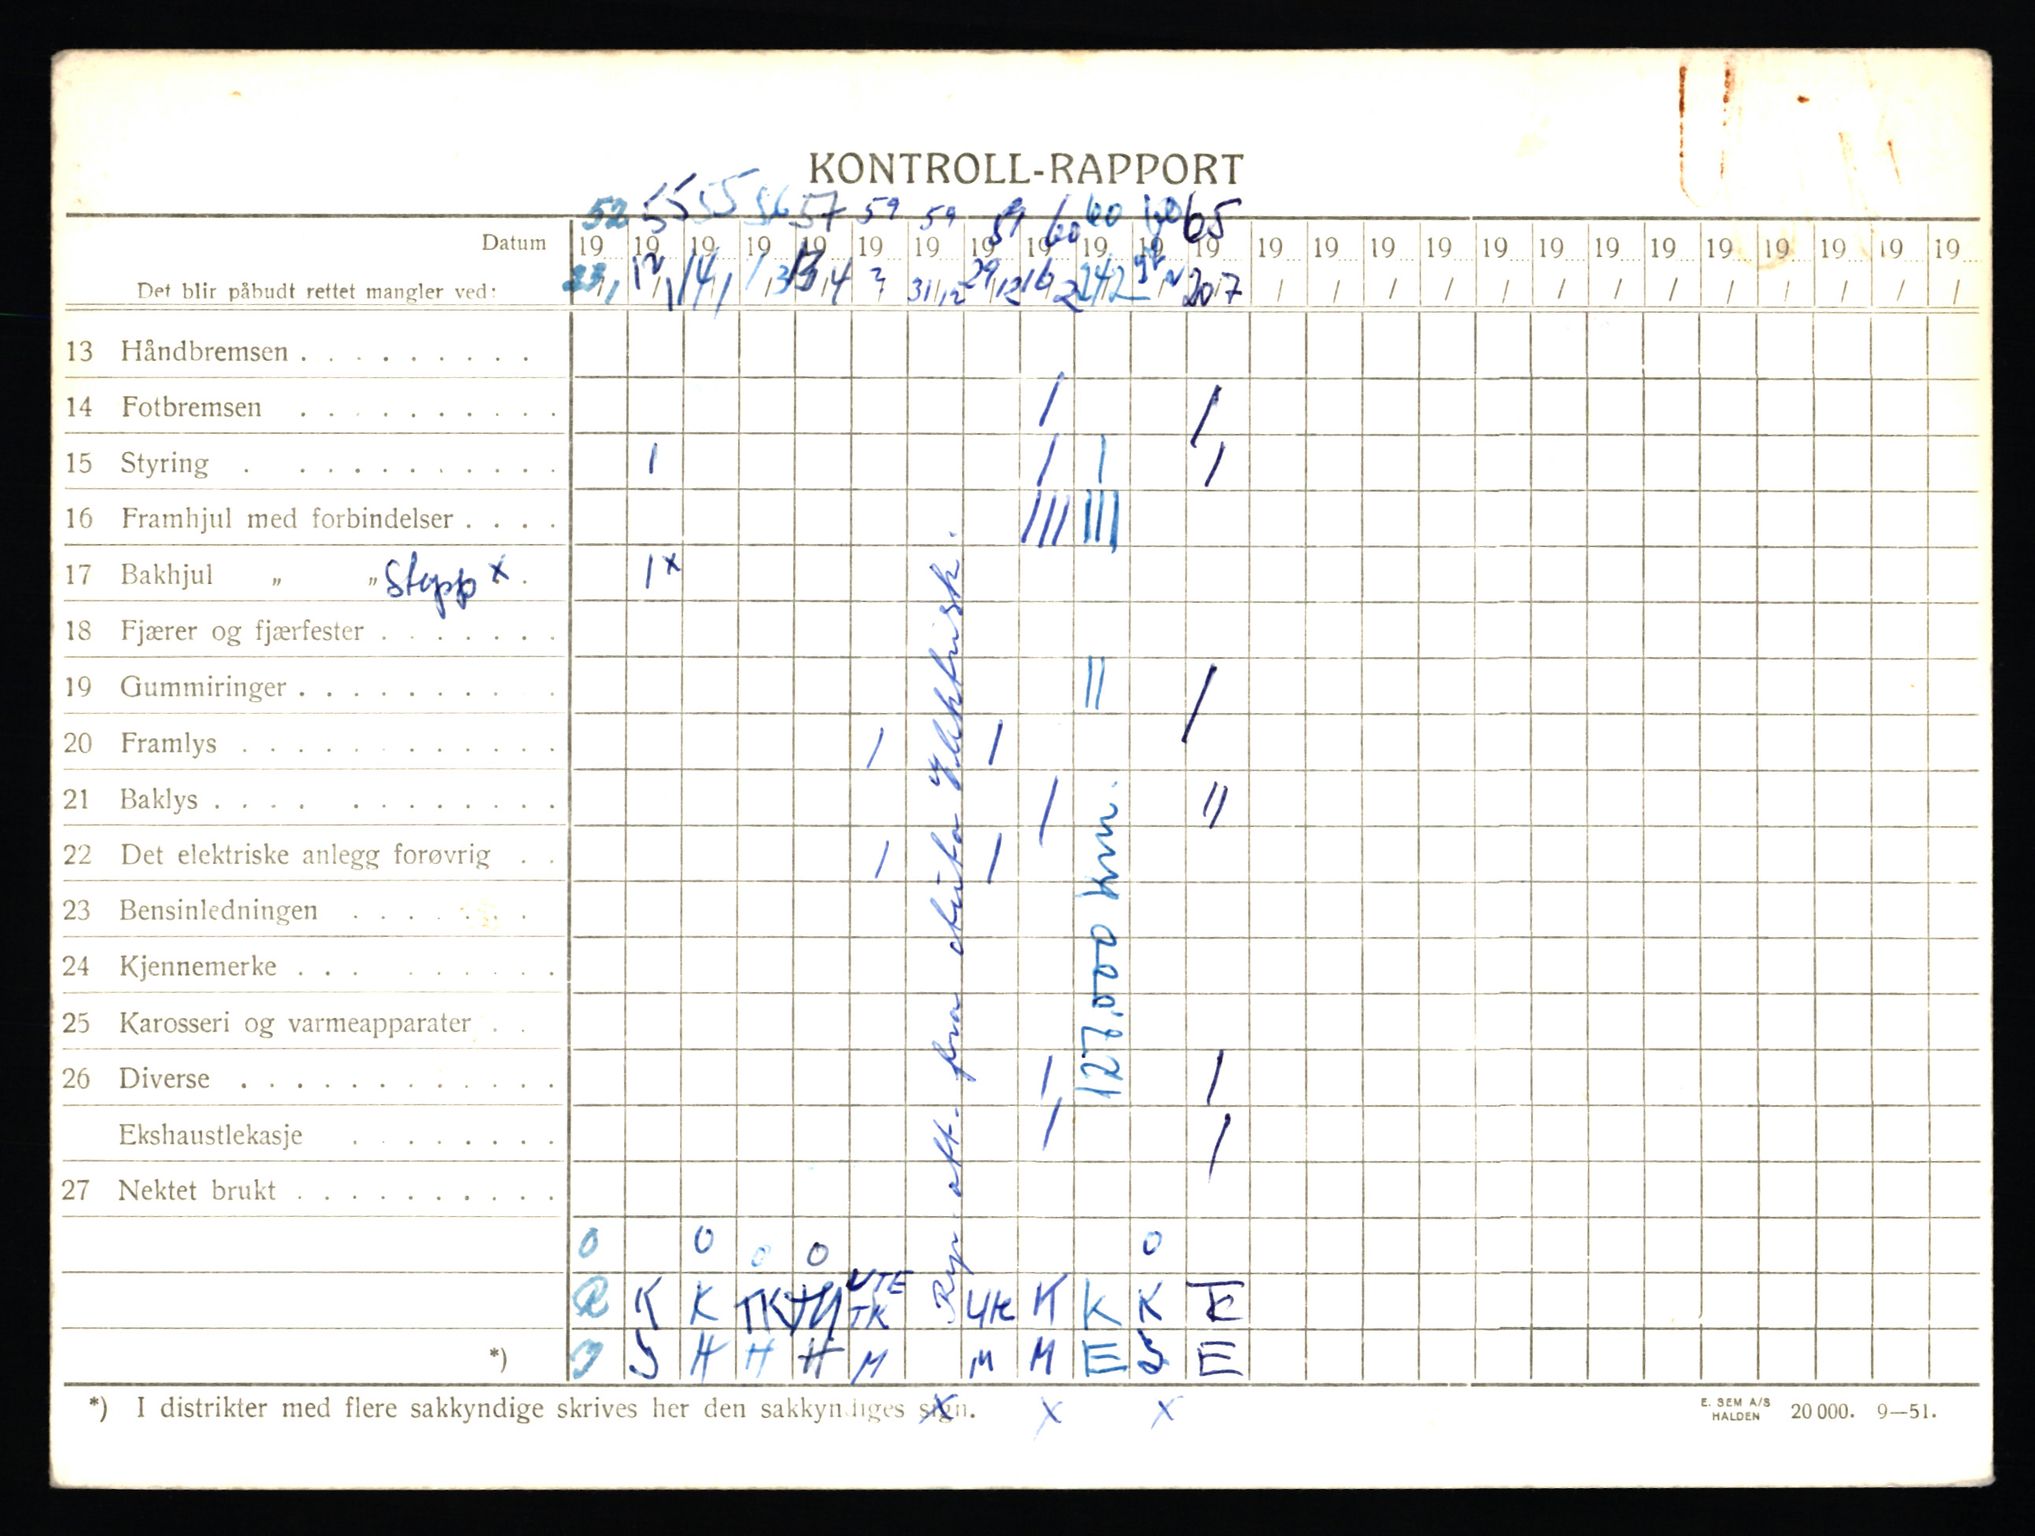 KONTROLL-RAPPORT
52 55 55 56 57 59 59 59 60 60 60 65
Datum 19 19 19 19 19 19 19 19 19 19 19 19 19 19 19 19 19 19 19 19 19 19 19 19 19
Det blir påbudt rettet mangler ved: 23/1 12/1 14/1 1/3 13/4 31/12 29/12 16/2 24/2 20/7 / / / / / / / / / / / / /
13 Håndbremsen . . . . . . . . .
14 Fotbremsen . . . . . . . . . . / /
15 Styring . . . . . . . . . . . / / / /
16 Framhjul med forbindelser . . . . /// ///
17 Bakhjul „ „ Stypp x . / x
18 Fjærer og fjærfester . . . . . . .
19 Gummiringer . . . . . . . . . . // /
20 Framlys . . . . . . . . . . . . / /
21 Baklys . . . . . . . . . . . . / //
22 Det elektriske anlegg forøvrig . . / /
23 Bensinledningen . . . . . . .
24 Kjennemerke . . . . . . . . .
25 Karosseri og varmeapparater . .
26 Diverse . . . . . . . . . . . . / /
Ekshaustlekasje . . . . . . . . / /
27 Nektet brukt . . . . . . . . . .
Rep. att. fra
127.000 km.
0 0 0 0 0
R K K TK UTE TK K K K TK
*) J H H H M M M E S E
*) I distrikter med flere sakkyndige skrives her den sakkyndiges sign.
x x x
E. SEM A/S
HALDEN 20 000. 9—51.